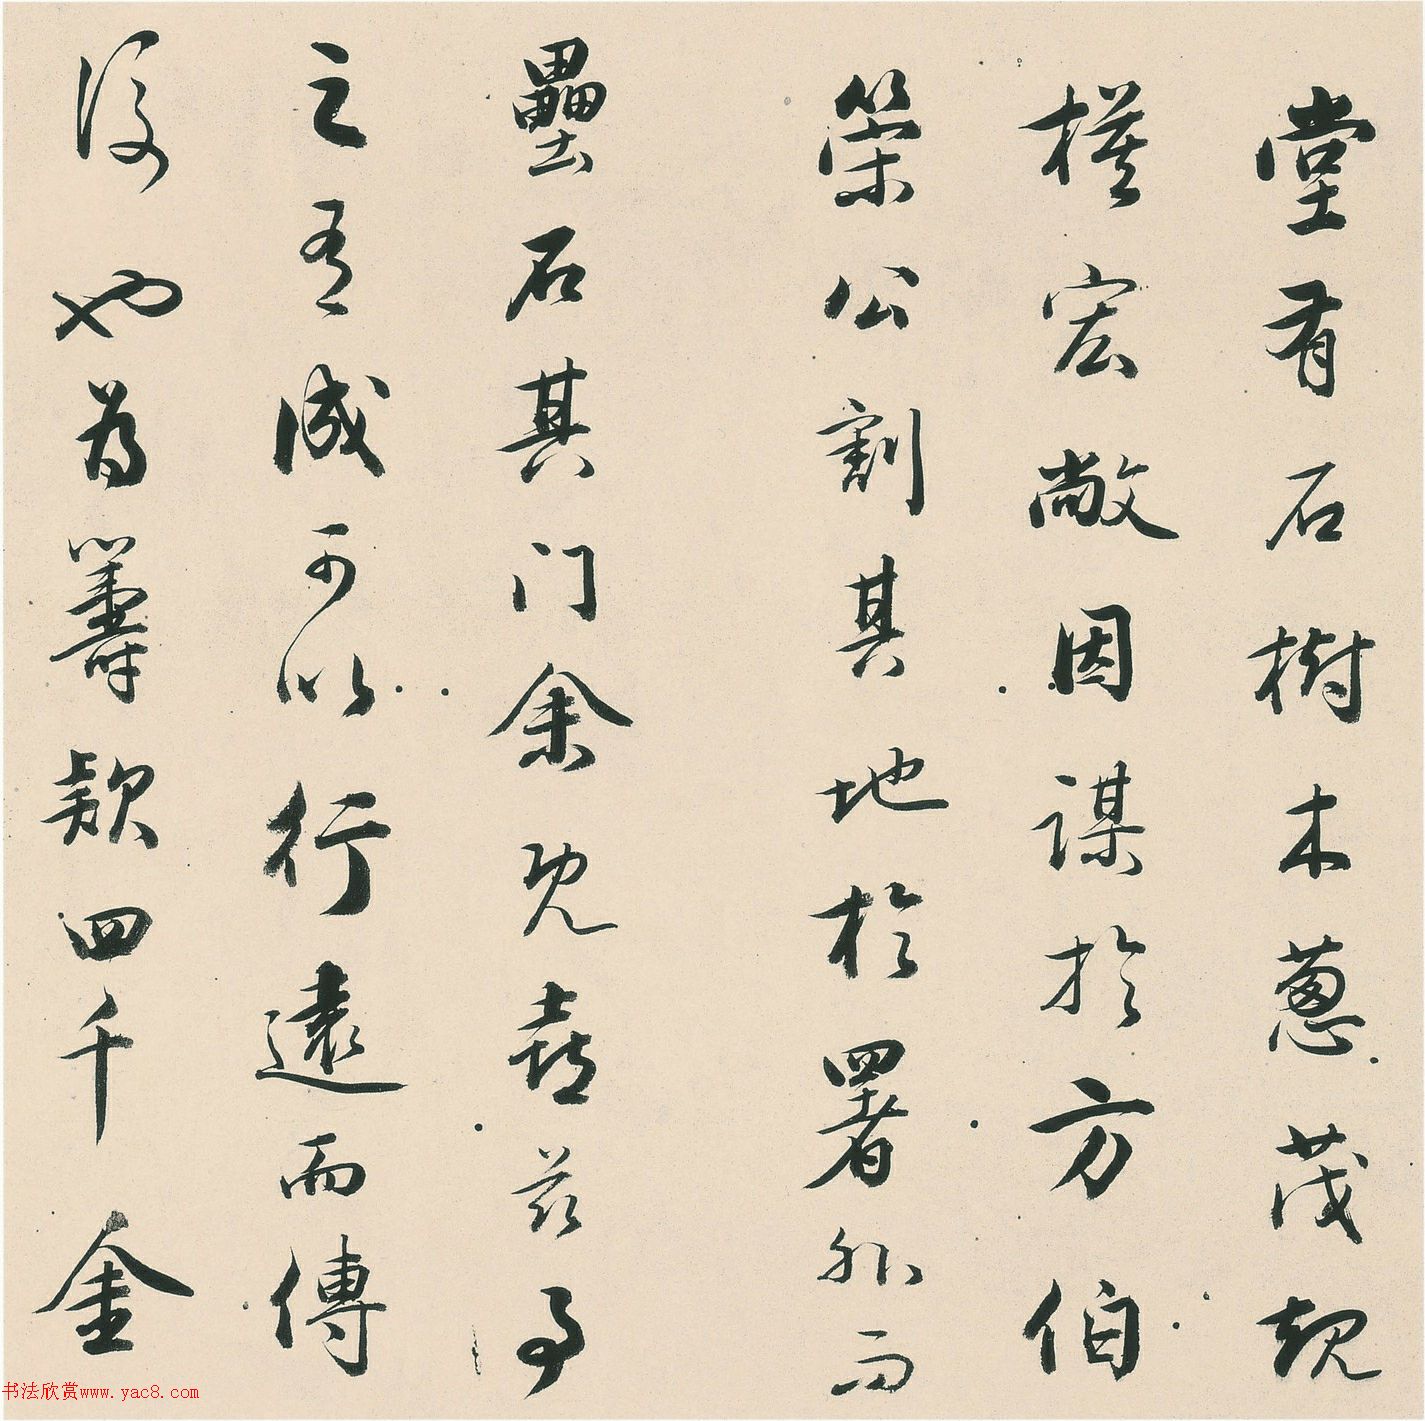 堂有石樹木蔥茂規
模宏敞因謀於方伯
榮公割其地於署外而
壘石其門余既喜茲事
之有成可以行遠而傳
後也為籌款四千金
书法欣赏www.yac8.com